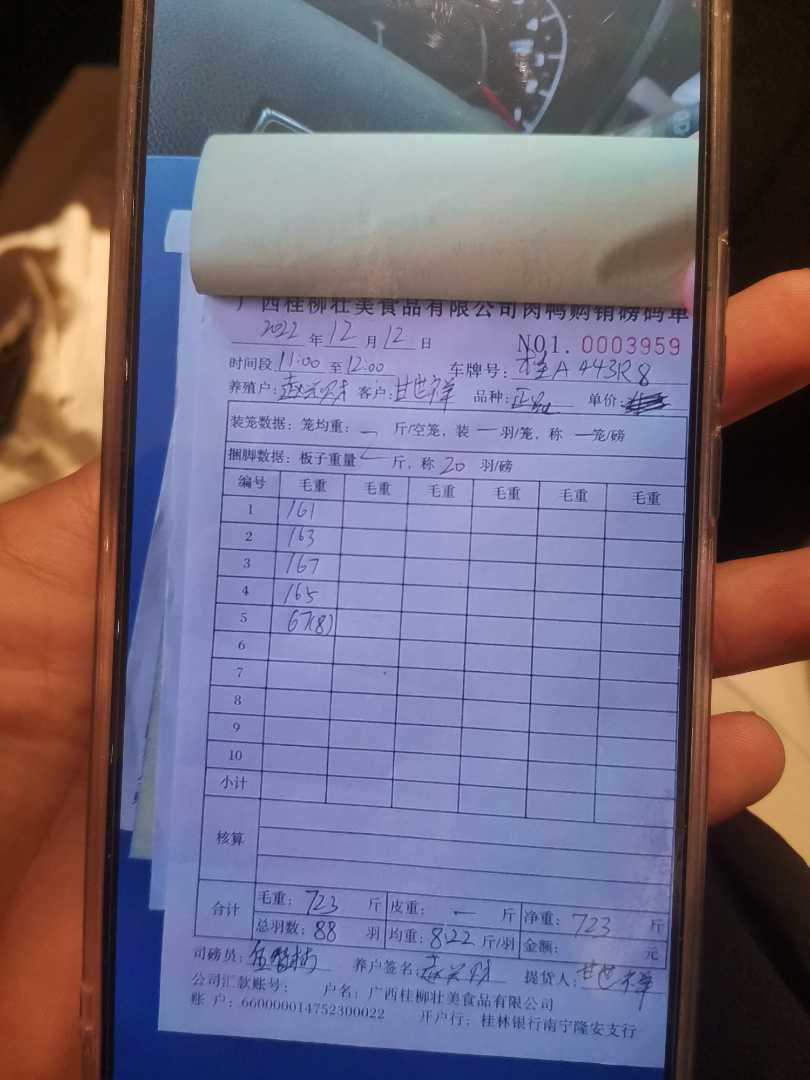 广西桂柳壮美食品有限公司肉鸭购销磅码单
2022 年 12 月 12 日 NO1. 0003959
时间段 11:00 至 12:00 车牌号: 桂A 443R8
养殖户: 客户: 甘世祥 品种: 单价:
装笼数据: 笼均重: — 斤/空笼, 装 — 羽/笼, 称 — 笼/磅
捆脚数据: 板子重量 斤, 称 20 羽/磅
编号 毛重 毛重 毛重 毛重 毛重 毛重
1 161
2 163
3 167
4 165
5 67(8)
6
7
8
9
10
小计
核算
合计 毛重: 723 斤 皮重: — 斤 净重: 723 斤
总羽数: 88 羽 均重: 8.22 斤/羽 金额: 元
司磅员: 养户签名: 提货人: 甘世祥
公司汇款账号: 户名: 广西桂柳壮美食品有限公司
账 户: 660000014752300022 开户行: 桂林银行南宁隆安支行